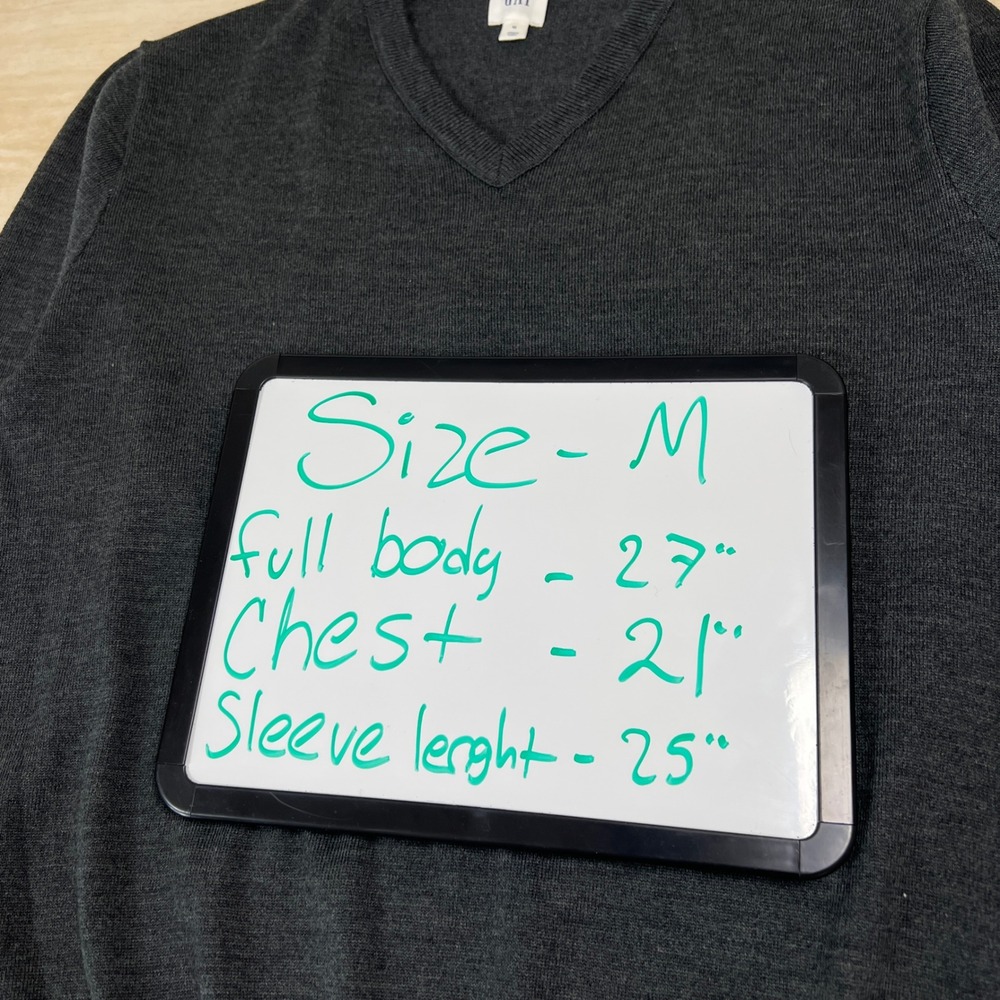 GAP
Size - M
full body - 27"
Chest - 21"
Sleeve lenght - 25"